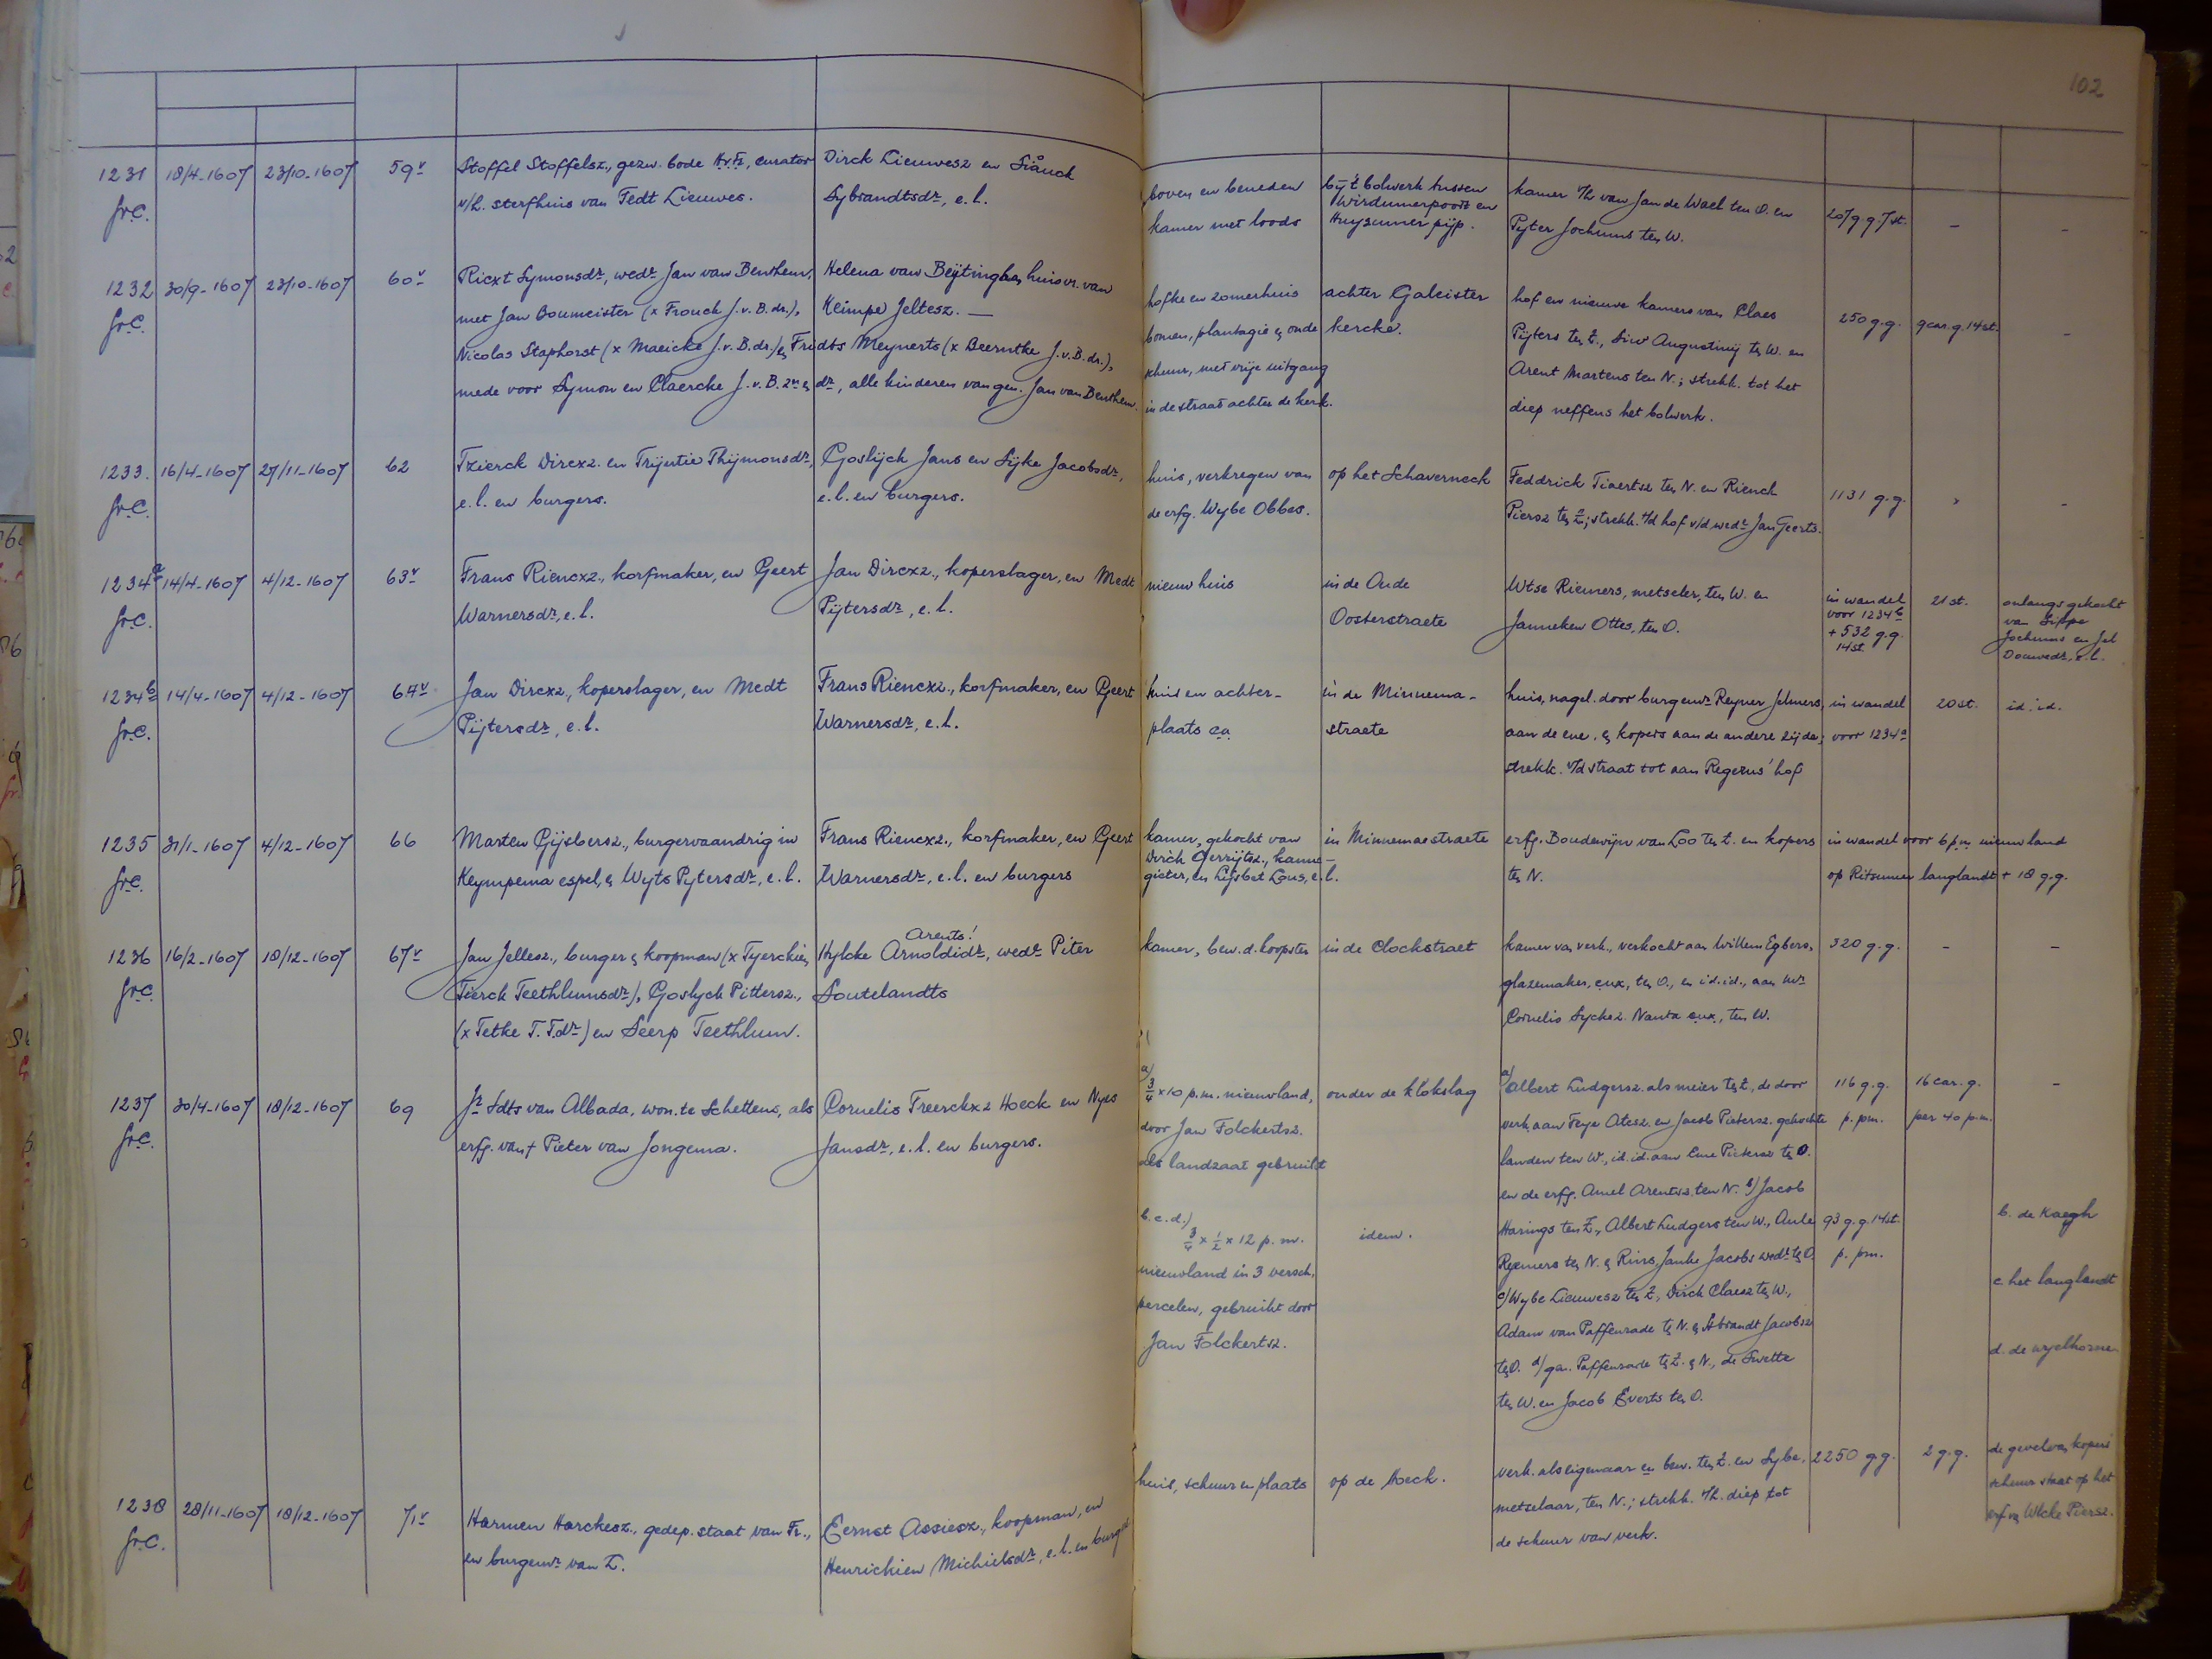 102
1231 18/4-1607 23/10-1607 59v Stoffel Stoffelsz., gezw. bode Hv.Fr., curator Dirck Lieuwesz en Siåuck boven en beneden bij 't bolwerk tussen kamer v/h van Jan de Wael ten O. en 207 g.g. 7 st. - -
fr.C. v/h. sterfhuis van Fedt Lieuwes. Sybrandtsdr, e.l. kamer met loods Wirdumerpoort en Huyzumer pijp. Pyter Jochums ten W.
1232 30/9-1607 23/10-1607 60v Ricxt Symonsdr, wedr Jan van Benthem, Helena van Beijtingha, huisvr. van hofke en zomerhuis achter Galeister hof en nieuwe kamers van Claes 250 g.g. 9 car.g. 14 st. -
fr.C. met Jan Boumeister (x Frouck J.v.B.dr.), Keimpe Jeltesz. — bomen, plantagie en oude kercke. Pijters ten Z., Siw Augustinij ten W. en
Nicolas Staphorst (x Maeicke J.v.B.dr.) en Fridts Meynerts (x Beerntke J.v.B.dr.), schuur, met vrije uitgang Arent Martens ten N.; strekk. tot het
mede voor Symon en Claercke J.v.B.zn en dr, alle kinderen van gen. Jan van Benthem. in de straat achter de kerk. diep neffens het bolwerk.
1233. 16/4-1607 27/11-1607 62 Tzierck Dircxz. en Trijntie Thijmonsdr, Goslijck Jans en Sijke Jacobsdr, huis, verkregen van op het Schaverneck Feddrick Tiaertsz ten N. en Rienck 1131 g.g. -
fr.C. e.l. en burgers. e.l. en burgers. de erfg. Wybe Obbes. Piersz ten Z; strekk. t/d hof v/d wedr Jan Geerts.
1234a 14/4-1607 4/12-1607 63v Frans Riencxz., korfmaker, en Geert Jan Dircxz., koperslager, en Medt nieuw huis in de Oude Wtse Riemers, metseler, ten W. en in wandel 21 st. onlangs gekocht
fr.C. Warnersdr, e.l. Pijtersdr, e.l. Oosterstraete Janneken Ottes, ten O. voor 1234b van Sippe
+ 532 g.g. Jochums en Jel
14 st. Douwedr, e.l.
1234b 14/4-1607 4/12-1607 64v Jan Dircxz., koperslager, en Medt Frans Riencxz., korfmaker, en Geert huis en achter- in de Minnema- huis, nagel. door burgemr Reyner Jelmers, in wandel 20 st. id. id.
fr.C. Pijtersdr, e.l. Warnersdr, e.l. plaats c.a. straete aan de ene, en kopers aan de andere zijde; voor 1234a
strekk. v/d straat tot aan Regerus' hof
1235 31/1-1607 4/12-1607 66 Marten Gijsbersz., burgervaandrig in Frans Riencxz., korfmaker, en Geert kamer, gekocht van in Minnemaestraete erfg. Boudewijn van Loo ten Z. en kopers in wandel voor 6 p.m. nieuwland
fr.C. Keympema espel, en Wyts Pytersdr, e.l. Warnersdr, e.l. en burgers Dirck Gerrijtsz., kanne- gieter, en Lijsbet Lous, e.l. ten N. op Ritsumer langlandt + 18 g.g.
1236 16/2-1607 18/12-1607 67v Jan Jellesz., burger en koopman (x Tyerckien Hylcke Arnoldidr, wedr Piter kamer, bew. d. koopster in de Clockstraet kamer van verk., verkocht aan Willem Egbers, 320 g.g. - -
Arents!
fr.C. Tierck Teethlumsdr), Goslyck Pittersz., Soutelandts glazemaker, cux, ten O., en id.id., aan Mr
(x Tetke T.T.dr) en Seerp Teethlum. Cornelis Syckez. Nauta cux, ten W.
1237 30/4-1607 18/12-1607 69 Jr Sdts van Albada, won. te Schettens, als Cornelis Freerckxz Hoeck en Nyes a) 3/4 x 10 p.m. nieuwland, onder de klokslag a) Albert Ludgersz. als meier ten Z, de door 116 g.g. 16 car. g. -
fr.C. erfg. van † Pieter van Jongema. Jansdr, e.l. en burgers. door Jan Folckertsz. verk. aan Feye Atesz. en Jacob Pietersz. gekochte p. pm. per 40 p.m.
als landzaat gebruikt landen ten W., id. id. aan Eme Pietersz ten O.
en de erfg. Amel Arentsz. ten N. b) Jacob
b.c.d.) 3/4 x 1/2 x 12 p.m. idem. Harings ten Z., Albert Ludgers ten W., Aule 93 g.g. 14 st. b. de Kaegh
nieuwland in 3 versch. Reymers ten N. en Rins Janke Jacobs wedr ten O. p. pm.
percelen, gebruikt door c) Wybe Lieuwesz ten Z, Dirck Claesz ten W., c. het langlandt
Jan Folckertsz. Adam van Paffenrade ten N. en Sibrandt Jacobsz
ten O. d) gen. Paffenrade ten Z. en N., de Swette d. de wyelhorne
ten W. en Jacob Everts ten O.
1238 28/11-1607 18/12-1607 71v Harmen Harckesz., gedep. staat van Fr., Eernst Assiesz., koopman, en huis, schuur en plaats op de Hoeck. verk. als eigenaar en bew. ten Z. en Sybe, 2250 g.g. 2 g.g. de gevel van kopers
fr.C. en burgemr van L. Henrickien Michielsdr, e.l. en burgers metselaar, ten N.; strekk. v/h. diep tot schuur staat op het
de schuur van verk. erf van Wtcke Piersz.